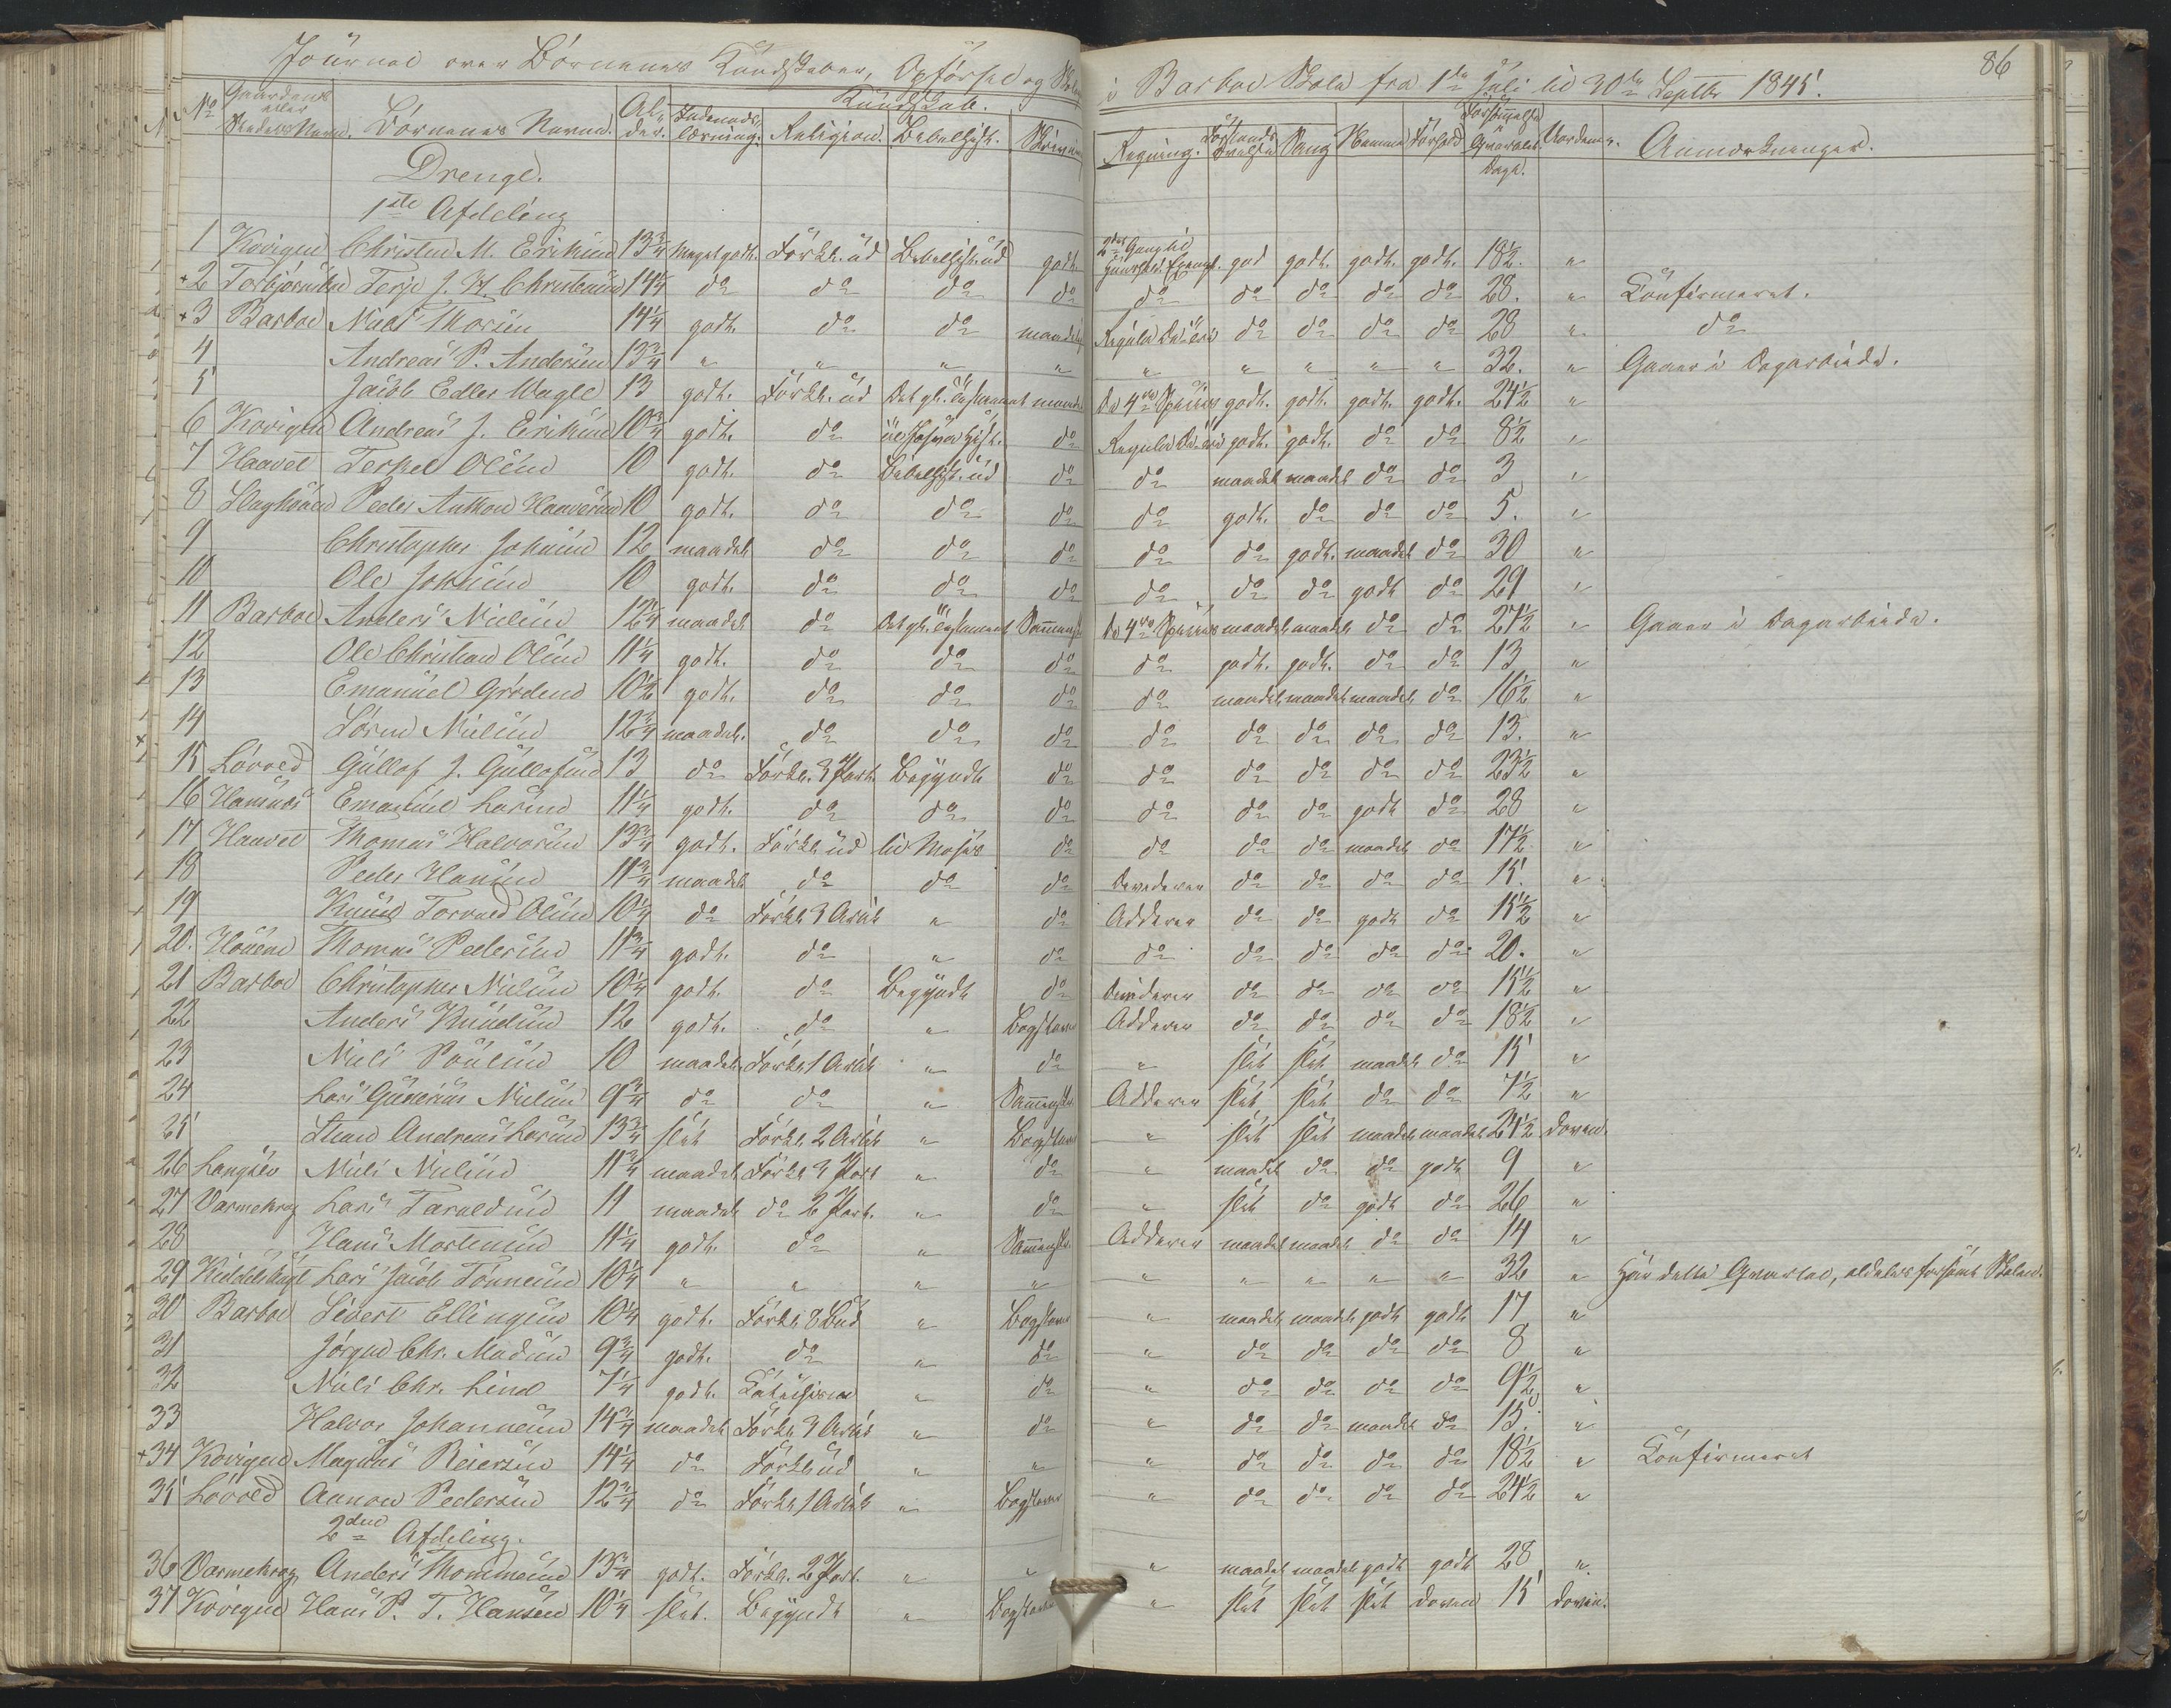 Journal over Børnenes Kundskaber, Opførsel og
i Barboe Skole fra 1de Juli til 30te Septbr 1845.
86
No Gaardens eller Stedets Navn. Børnenes Navne. Alder. Indenadslæsning. Kundskab. Religion. Bibelhist. Skrivning Regning. Forstands Øvelse Sang Nemme Forhold Forsømmelse i Qvartalet Dage. Anmærkninger.
Drenge.
1ste Afdeling
1 Kovigen Christen M. Eriksen 13 3/4 Meget godt. Forkl. ud Bibelhist. ud godt 2den Gang til god godt. godt. godt. 18 1/2. "
+2 Torbjørnsbu Terje J. H. Christensen 14 1/4 do do do do do do do do do 28. " Confirmeret.
+3 Barboe Niels Thorsen 14 1/4 godt. do do maadelig Regula Detri do do do do 28 " do
4 Andreas P. Andersen 13 3/4 " " " " " " " " " 32. " Gaaer i Dagarbeide.
5 Jacob Edler Wagle 13 godt. Forkl. ud Det gl. Testament maadel De 4re Species godt. godt. godt. godt. 24 1/2 "
6 Kovigen Andreas J. Eriksen 10 3/4 godt. do do Regula Detri godt. godt. do do 8 1/2 "
7 Haavet Terkel Olsen 10 godt. do Bibelhist. ud do do maadel maadel do do 3 "
8 Peder Anthon Haaversen 10 godt. do do do do godt. do do do 5. "
9 Christopher Johnsen 12 maadel do do do do do godt. maadel do 30 "
10 Ole Johnsen 10 godt. do do do do do do godt do 29 "
11 Barboe Anders Nielsen 12 1/4 maadel do Det gl. Testament Sammensk De 4re Species maadel maadel do do 27 1/2 " Gaaer i Dagarbeide.
12 Ole Christian Olsen 11 1/4 godt. do do do do godt. godt. do do 13 "
13 Emanuel Grødem 10 1/2 godt. do do do do maadel. maadel. maadel. do 16 1/2 "
14 Søren Nielsen 12 3/4 maadel. do do do do do do do do 13. "
15 Løvold Gullof J. Gullofsen 13 do Forkl. 3 Part. Begyndt do do do do do do 23 1/2 "
16 Hansnæs Emanuel Larsen 11 1/4 godt. do do do do do do godt do 28 "
17 Haavet Thomas Halvorsen 13 3/4 godt. Forkl. ud til Moses do do do do maadel do 17 1/2 "
18 Peder Hansen 11 3/4 maadel do do do Devideren do do do do 15. "
19 Knud Torvald Olsen 10 1/4 do Forkl. 3 Artik " do Adderer do do godt do 15 1/2 "
20. Thomas Pedersen 11 3/4 godt. do " do do do do do do 20. "
21 Barboe Christopher Nielsen 10 1/4 godt. do Begyndt do do do do do 15 1/2 "
22 Anders Knudsen 12 godt. do " Bogstaver Adderer do do do do 18 1/2 "
23 Niels Poulsen 10 maadel Forkl. 1 Artik " do " slet slet maadel do 15 "
24 Lars Nielsen 9 3/4 do do " Sammensk. Adderer slet slet do do 7 1/2 "
25 Andreas Larsen 13 3/4 slet Forkl. 2 Artik " Bogstaver " slet slet maadel maadel 24 1/2 doven.
26 Langsev Niels Nielsen 11 3/4 maadel Forkl. 3 Part " do " maadel do do godt 9 "
27 Varmekrog Lars Taraldsen 11 maadel do 2 Part. " do " slet do godt do 26 "
28 Hans Mortensen 11 1/4 godt. do " Sammensk. Adderer maadel maadel do do 14 "
29 Lars Jacob Tønnesen 10 1/4 " " " " " " " " " 32 " Har dette Qvartal, aldeles forsømt Skolen.
30 Barboe Sivert Ellingsen 10 1/4 godt. Forkl. 8 Bud " Bogstaver " maadel. maadel. godt godt 17 "
31 Jørgen Chr. Madsen 9 3/4 godt. do " do " do do do do 8 "
32 Niels Chr. Lind 7 1/4 godt. " do " do do do do 9 1/2. "
33 Halvor Johannesen 14 3/4 maadel Forkl. 3 Artik " do " do do maadel do 15. "
+34 Kovigen Magnus Reiersen 14 1/4 do Forkl. ud " " " do do do do 18 1/2 " Confirmeret
35 Løvold Aanon Pedersen 12 3/4 do Forkl. 1 Artik " Bogstaver " do do do do 24 1/2 "
2den Afdeling.
36 Varmekrog Anders Thommesen 13 3/4 godt. Forkl. 2 Part. " " " maadel maadel godt godt 28 "
37 Kovigen Hans P. T. Hansen 10 1/4 slet. Begyndt " Bogstaver " slet slet slet doven 15 doven.